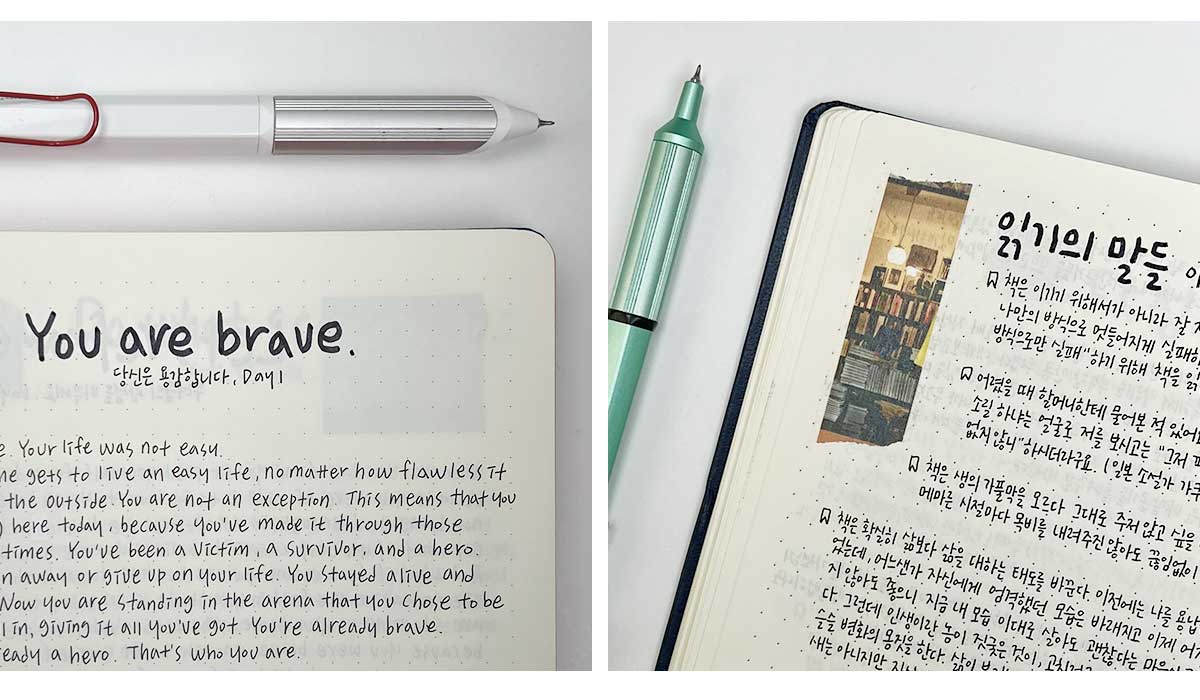 You are brave.
당신은 용감합니다, Day 1
e. Your life was not easy.
ne gets to live an easy life, no matter how flawless it
the outside. You are not an exception. This means that you
g here today, because you've made it through those
times. You've been a victim, a survivor, and a hero.
n away or give up on your life. You stayed alive and
Now you are standing in the arena that you chose to be
l in, giving it all you've got. You're already brave.
eady a hero. That's who you are.
읽기의 말들 이
책은 이기기 위해서가 아니라 잘
나만의 방식으로 멋들어지게 실패하
방식으로만 실패"하기 위해 책을 읽
어렸을 때 할머니한테 물어본 적 있어
소릴 하냐는 얼굴로 저를 보시고는 "그저
없지 않니"하시더라구요. (일본 소설가 가쿠
책은 생의 가풀막을 오르다 그대로 주저앉고 싶을
메마른 시절마다 목비를 내려주진 않아도 끊임없이
책은 확실히 삶보다 삶을 대하는 태도를 바꾼다. 이전에는 나를 용납
었는데, 어느샌가 자신에게 엄격했던 모습은 바래지고 이제 어
지 않아도 좋으니 지금 내 모습 이대로 살아도 괜찮다는 마음이
다. 그런데 인생이란 놈이 짓궂은 것이,
슬슬 변화의 움직임을 한다. 삶이
새는 아니지만